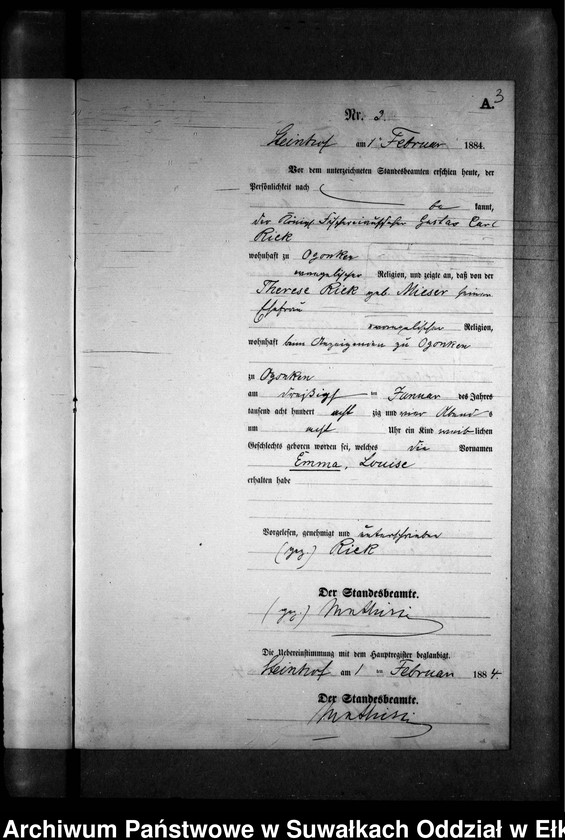 A. 3
Nr. 2.
Steinhof am 1ᵗᵉⁿ Februar 1884.
Vor dem unterzeichneten Standesbeamten erschien heute, der
Persönlichkeit nach
be kannt,
der Königl Fischereiaufseher Gustav Carl
Rick
wohnhaft zu Ogonken
evangelischer Religion, und zeigte an, daß von der
Therese Rick geb. Mieser seiner
Ehefrau
evangelischer Religion,
wohnhaft beim Anzeigenden zu Ogonken
zu Ogonken
am dreißigst en Januar des Jahres
tausend acht hundert acht zig und vier Abend s
um acht Uhr ein Kind weib lichen
Geschlechts geboren worden sei, welches die Vornamen
Emma, Louise
erhalten habe
Vorgelesen, genehmigt und unterschrieben
(gez.) Rick
Der Standesbeamte.
(gez.)
Die Uebereinstimmung mit dem Hauptregister beglaubigt.
Steinhof am 1 ten Februar 1884.
Der Standesbeamte.
Archiwum Państwowe w Suwałkach Oddział w Ełk